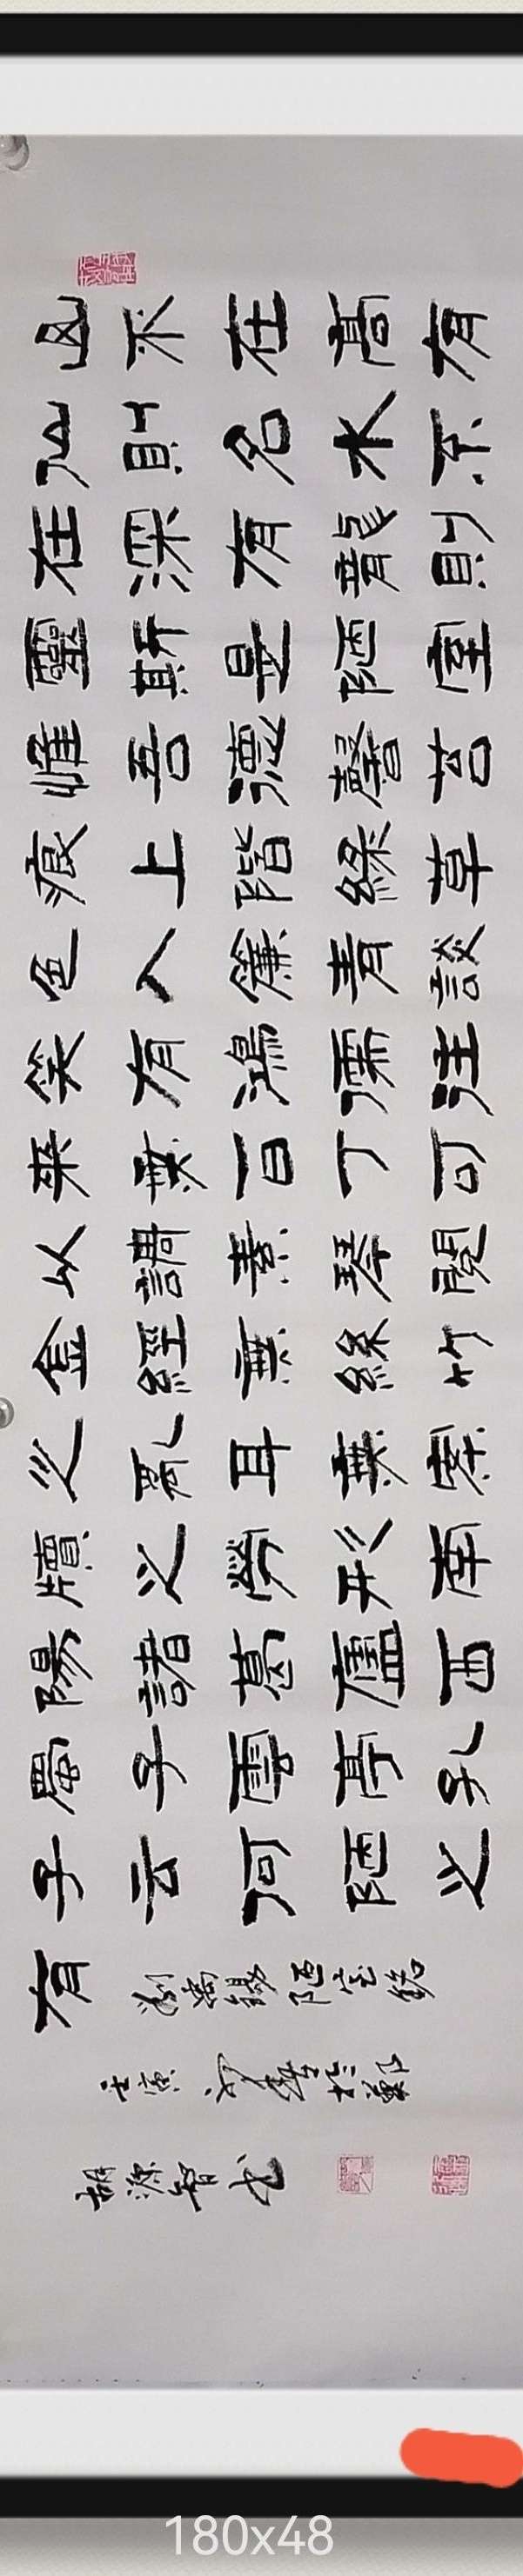 山不在高有
仙則名水不
在深有龍則
靈斯是陋室
惟吾德馨苔
痕上階綠草
色入簾青談
笑有鴻儒往
来無白丁可
以調素琴閱
金經無絲竹
之亂耳無案
牘之勞形南
陽諸葛廬西
蜀子雲亭孔
子云何陋之
有
劉禹錫陋室銘
壬寅
180x48